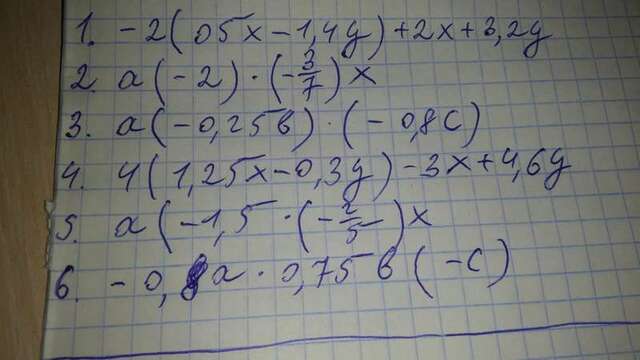 1. -2(05x-1,4y)+2x+3,2y
2. a(-2)·(-3/7)x
3. a(-0,25в)·(-0,8c)
4. 4(1,25x-0,3y)-3x+4,6y
5. a(-1,5·(-2/5)x
6. -0,8a·0,75в(-c)